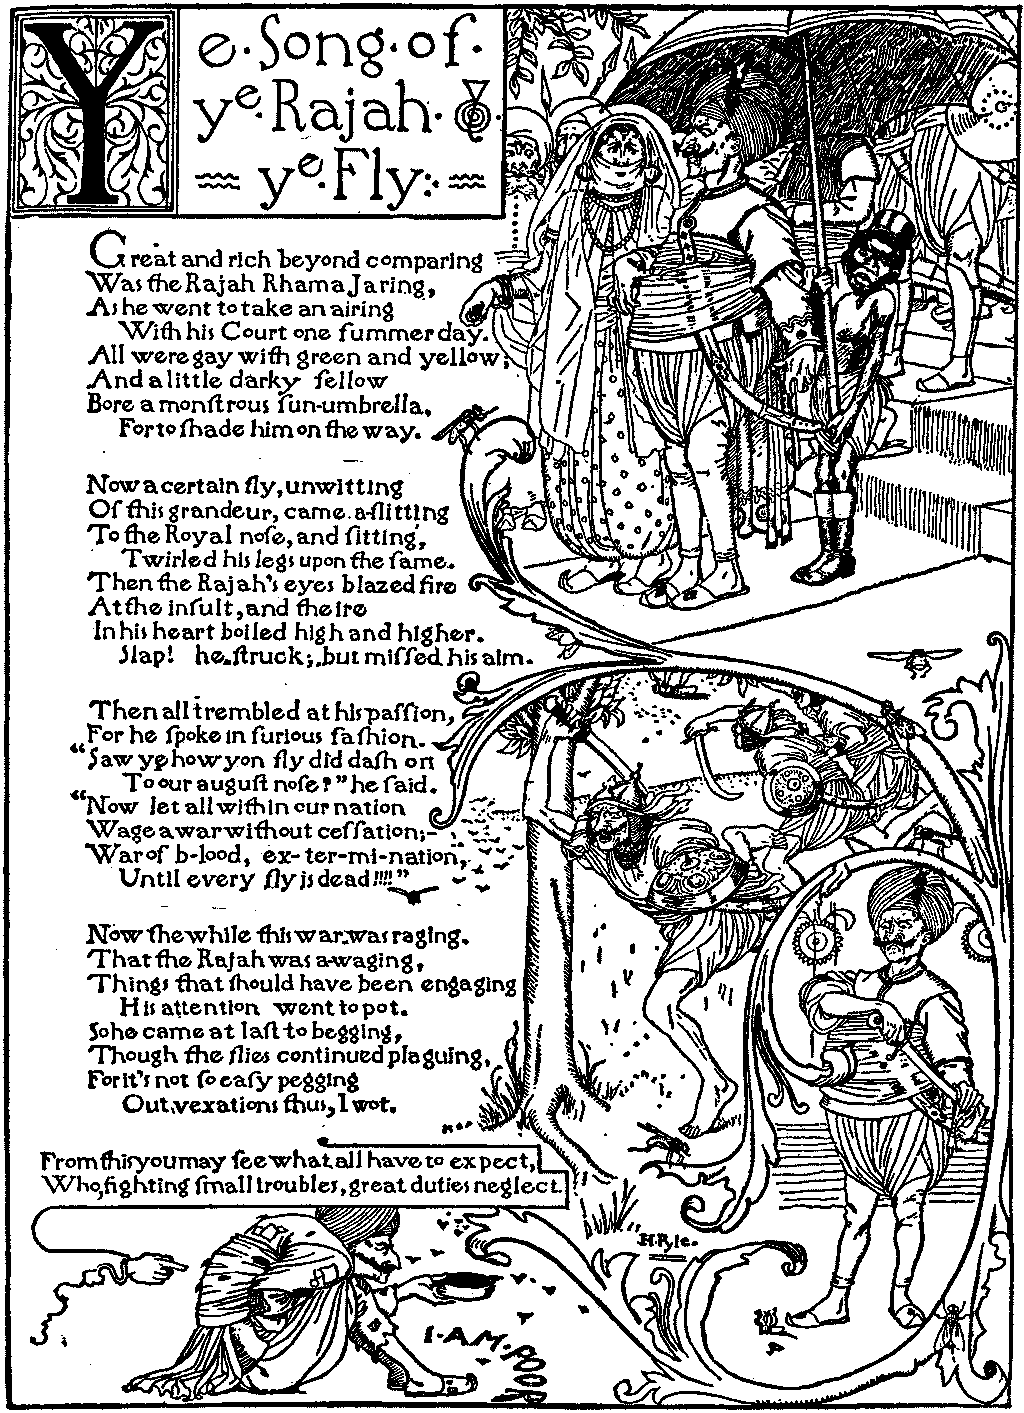 Ye·Song·of·
ye·Rajah·&
ye·Fly:
Great and rich beyond comparing
Was the Rajah Rhama Jaring,
As he went to take an airing
With his Court one ſummer day.
All were gay with green and yellow;
And a little darky fellow
Bore a monſtrous ſun-umbrella,
For to ſhade him on the way.
Now a certain fly, unwitting
Of this grandeur, came a-flitting
To the Royal noſe, and ſitting,
Twirled his legs upon the ſame.
Then the Rajah's eyes blazed fire
At the inſult, and the ire
In his heart boiled high and higher.
Slap! he ſtruck; but miſſed his aim.
Then all trembled at his paſſion,
For he ſpoke in furious faſhion.
“Saw ye how yon fly did daſh on
To our auguſt noſe?” he ſaid.
“Now let all within our nation
Wage a war without ceſſation;-
War of b-lood, ex-ter-mi-nation,
Until every fly is dead!!!!”
Now the while this war was raging.
That the Rajah was a-waging,
Things that ſhould have been engaging
His attention went to pot.
So he came at laſt to begging,
Though the flies continued plaguing,
For it's not ſo eaſy pegging
Out vexations thus, I wot.
From this you may ſee what all have to expect,
Who, fighting ſmall troubles, great duties neglect.
H. Pyle.
I·AM·POOR